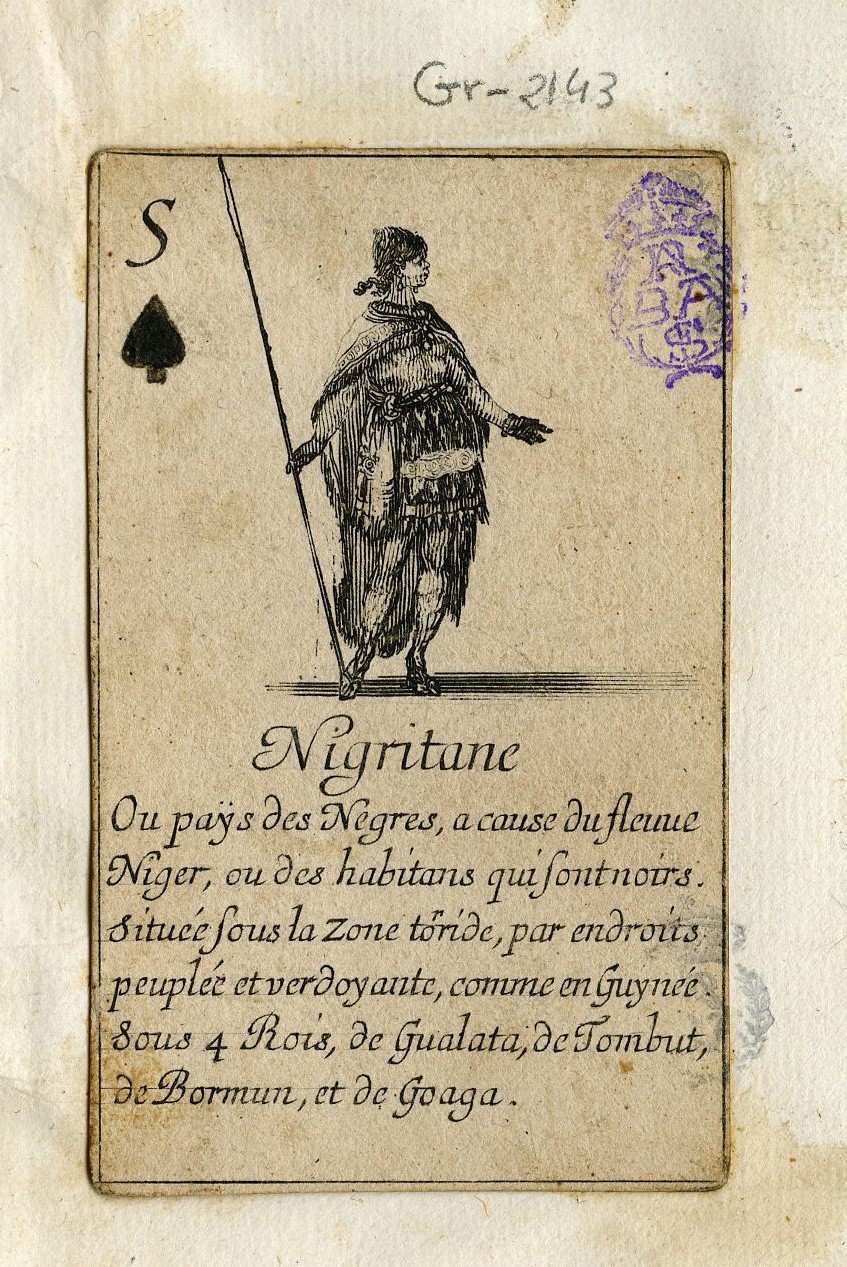 Gr-2143
S
R
B A
S
Nigritane
Ou païs des Negres, a cause du fleuue
Niger, ou des habitans qui sont noirs.
Situeé sous la Zone torride, par endroits
pepleé et verdoyante, comme en Guyneé.
Sous 4 Rois, de Gualata, de Tombut,
de Bormun, et de Goaga.